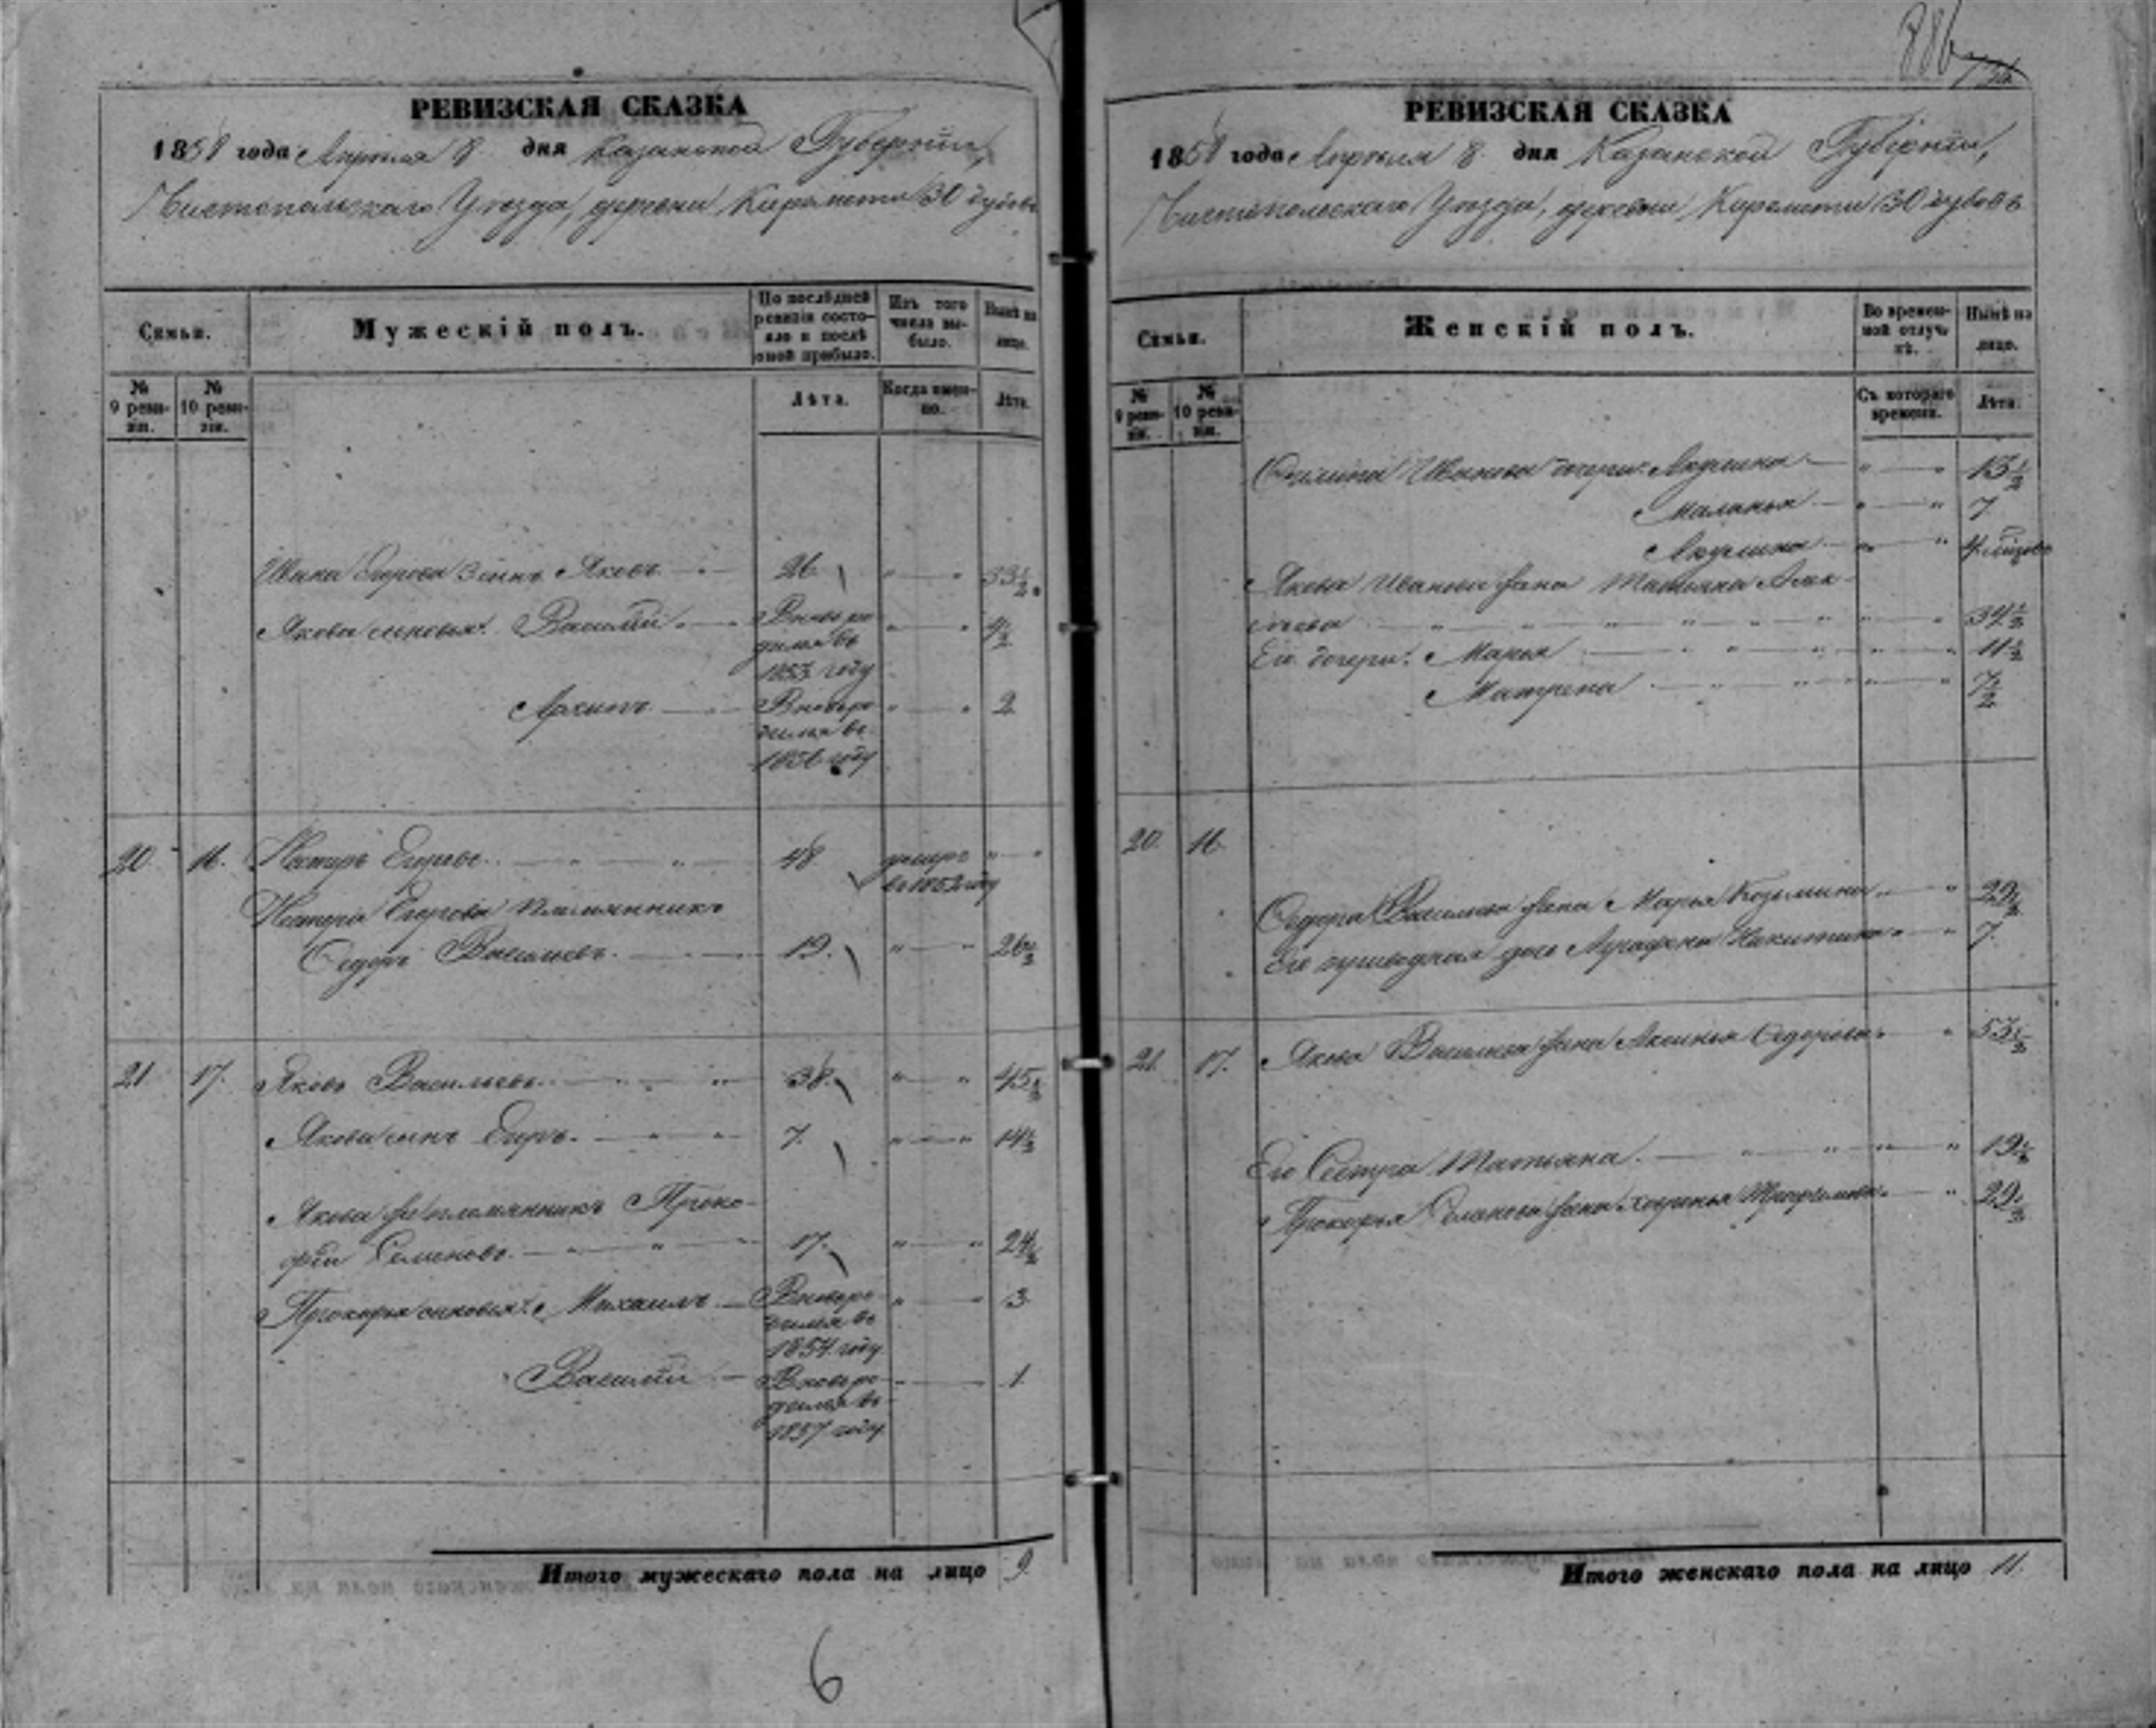 886
РЕВИЗСКАЯ СКАЗКА
1858 года Апреля 8 дня Казанской Губернии,
Чистопольскаго Уезда, деревни Киремети 30 дубовъ
Семьи.
Мужескій полъ.
По послѣдней ревизіи состояло и послѣ оной прибыло.
Изъ того числа выбыло.
Нынѣ на лицо.
№ 9 ревизіи.
№ 10 ревизіи.
Лѣта.
Когда именно.
Лѣта.
Ивана Егорова 3 сынъ Яковъ 26 33 1/2
Якова сыновья: Василий Вновь ро 4 1/2
дился въ
1853 году
Архипъ Вновь ро 2
дился въ
1856 году
20 16. Нестеръ Егоровъ 48 умеръ
въ 1852 году
Нестера Егорова племянникъ
Сидоръ Васильевъ. 19. 26 1/2
21 17. Яковъ Васильевъ. 38. 45 1/2
Якова сынъ Егоръ. 7. 14 1/2
Якова племянникъ Проко-
фей Семеновъ. 17. 24 1/2
Прокофья сыновья: Михаилъ Вновь ро 3
дился въ
1854 году
Василий Вновь ро 1
дился въ
1857 году
Итого мужескаго пола на лицо 9
6
РЕВИЗСКАЯ СКАЗКА
1858 года Апреля 8 дня Казанской Губернии,
Чистопольскаго Уезда, деревни Киремети 30 дубовъ
Семьи.
Женскій полъ.
Во временной отлучкѣ.
Нынѣ на лицо.
№ 9 ревизіи.
№ 10 ревизіи.
Съ котораго времени.
Лѣта.
Ивановa дочери: Акулина 13 1/2
Маланья 7
Акулина 4
Якова Иванова жена Татьяна Алек-
сеева 34 1/2
Его дочери: Марья 11 1/2
Матрена 7 1/2
20. 16
Сидора Васильева жена Марья Козьмина 29 1/2
Его дочь Аграфена Никитина 7.
21. 17. Якова Васильева жена Аксинья Сидорова 53 1/2
Его Сестра Татьяна. 19 1/2
Прокофья Семенова жена 29 1/2
Итого женскаго пола на лицо 11.